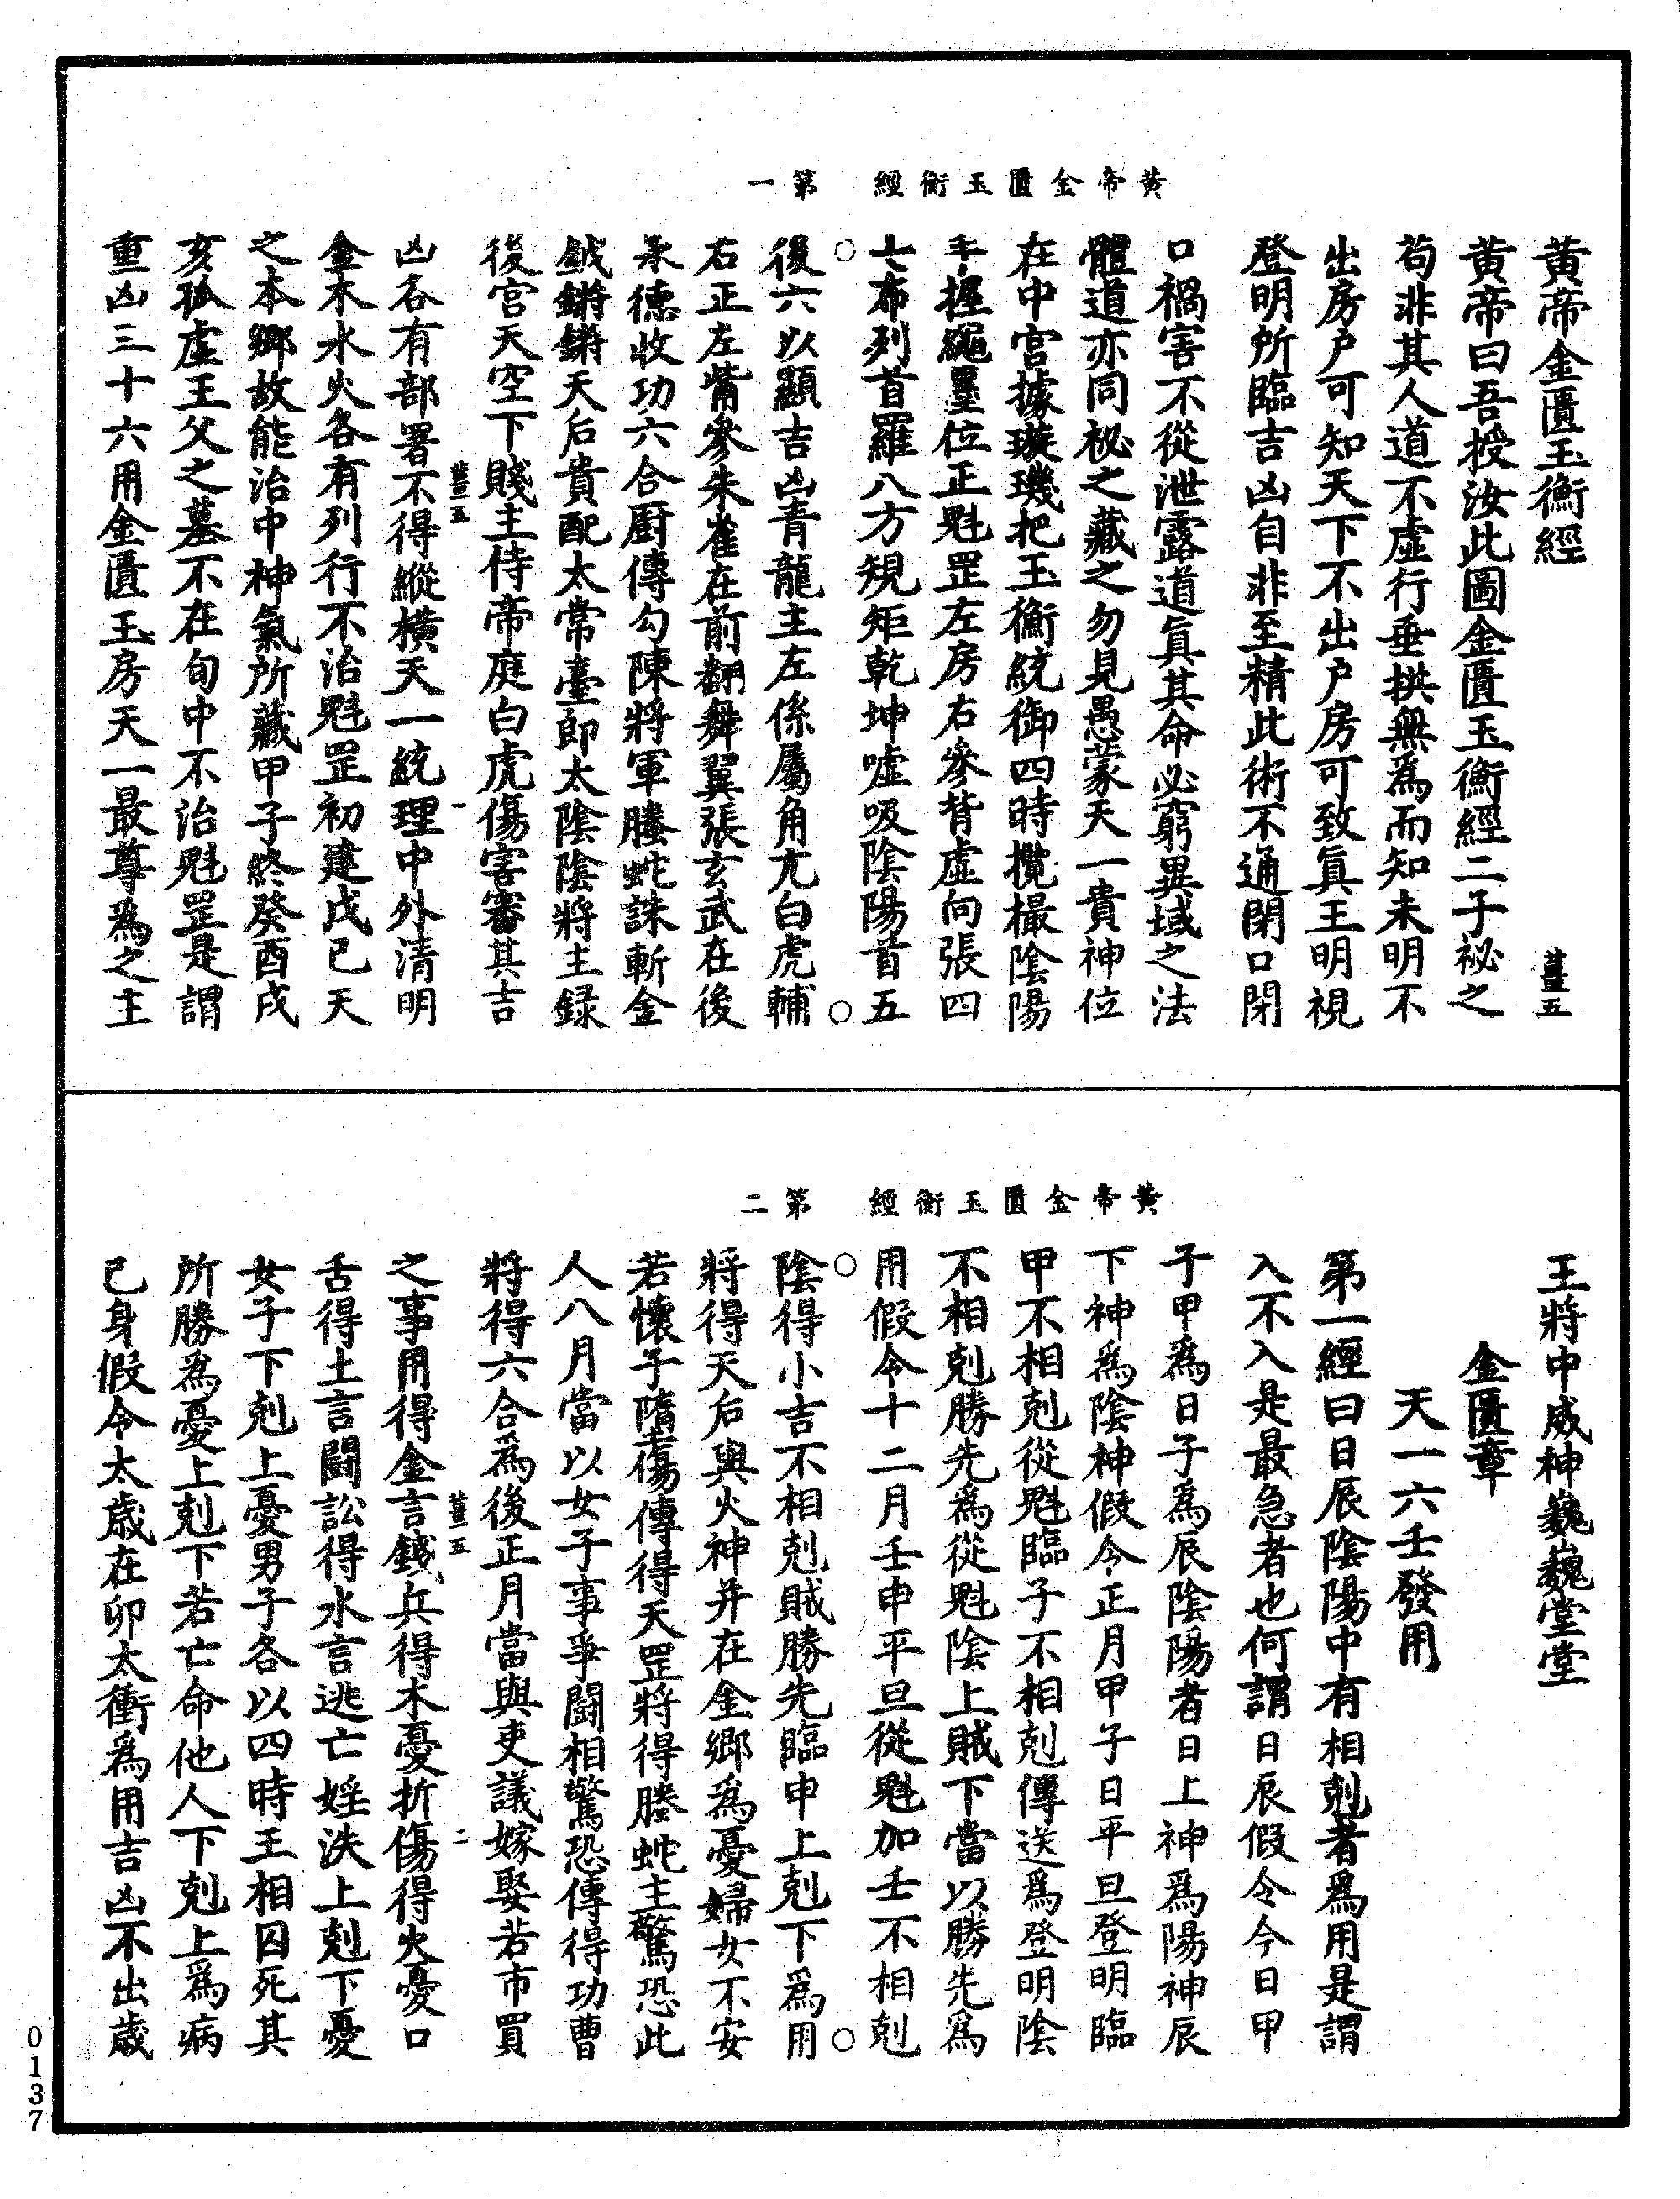 黃帝金匱玉衡經　第一
黃帝金匱玉衡經　薑五
黃帝曰吾授汝此圖金匱玉衡經二子祕之
苟非其人道不虛行垂拱無為而知未明不
出房户可知天下不出户房可致真王明視
登明所臨吉凶自非至精此術不通閉口閉
口禍害不從泄露道真其命必窮異域之法
體道亦同祕之藏之勿見愚蒙天一貴神位
在中宮據璇璣把玉衡統御四時攬撮陰陽
手握繩墨位正魁罡左房右參背虛向張四
七布列首羅八方規矩乾坤噓吸陰陽首五
後六以顯吉凶青龍主左係屬角亢白虎輔
右正左觜參朱雀在前翻舞翼張玄武在後
承德收功六合厨傳勾陳將軍螣蛇誅斬金
鉞鏘鏘天后貴配太常臺郎太陰陰將主録
後宮天空下賤主侍帝庭白虎傷害審其吉
薑五　一
凶各有部署不得縱橫天一統理中外清明
金木水火各有列行不治魁罡初建戊己天
之本鄉故能治中神氣所藏甲子終癸酉戌
亥孤虛王父之墓不在旬中不治魁罡是謂
重凶三十六用金匱玉房天一最尊為之主
黃帝金匱玉衡經　第二
王將中威神巍巍堂堂
金匱章
天一六壬發用
第一經曰日辰陰陽中有相剋者為用是謂
入不入是最急者也何謂日辰假令今日甲
子甲為日子為辰陰陽者日上神為陽神辰
下神為陰神假令正月甲子日平旦登明臨
甲不相剋從魁臨子不相剋傳送為登明陰
不相剋勝先為從魁陰上賊下當以勝先為
用假令十二月壬申平旦從魁加壬不相剋
陰得小吉不相剋賊勝先臨申上剋下為用
將得天后與火神并在金鄉為憂婦女不安
若懷子隋傷傳得天罡將得螣蛇主驚恐此
人八月當以女子事爭鬪相驚恐傳得功曹
將得六合為後正月當與吏議嫁娶若市買
薑五　二
之事用得金言錢兵得木憂折傷得火憂口
舌得土言鬪訟得水言逃亡婬泆上剋下憂
女子下剋上憂男子各以四時王相囚死其
所勝為憂上剋下若亡命他人下剋上為病
己身假令太歲在卯太衝為用吉凶不出歲
0137